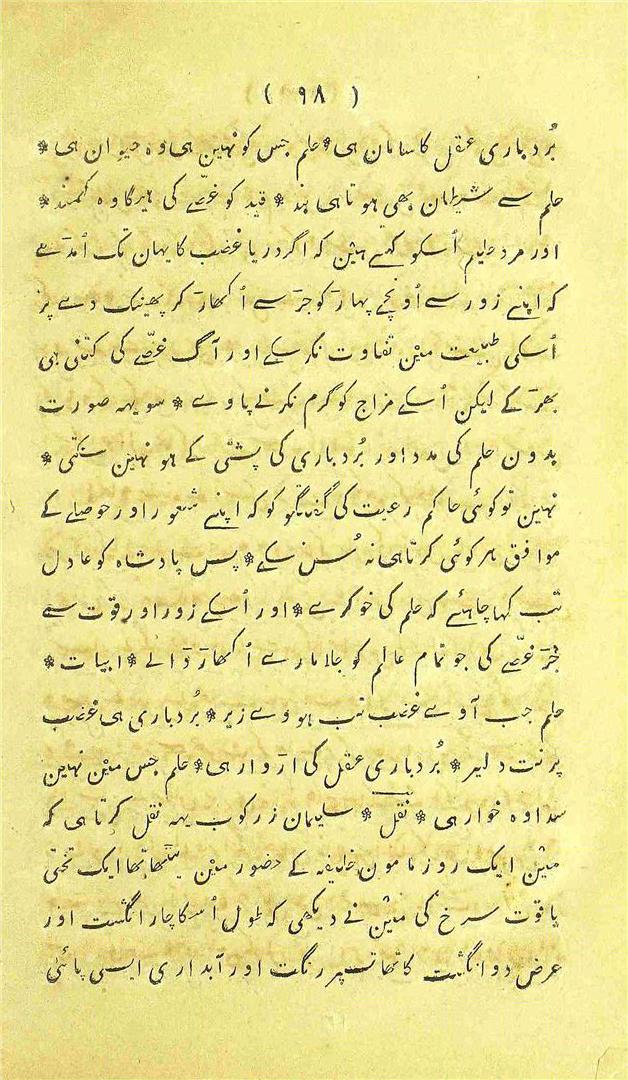 ( ٩٨ )
بُردباری عقل کا سامان ہی * حلم جس کو نہین ہی وہ حیوان ہی *
حلم سے شیطان بھی ہوتا ہی بند * قید کو غصّے کی ہیگا وہ کمند *
اور مرد حلیم اُسکو کہتے ہیٚن کہ اگر دریا غضب کا یہان تک اُمڈے
کہ اپنے زور سے اُونچے پہاڑ کو جڑ سے اُکھاڑ کر پھینک دے پر
اُسکی طبیعت میٚن تفاوت نکر سکے اور آگ غصّے کی کتنی ہی
بھڑکے لیکن اُسکے مزاج کو گرم نکرنے پاوے * سو یہہ صورت
بدون حلم کی مدد اور بُردباری کی پشتی کے ہو نہین سکتی *
نہین تو کوئی حاکم رعیت کی گفتگو کو کہ اپنے شعور اور حوصلے کے
موافق ہر کوئی کرتا ہی نہ سُن سکے * پس پادشاہ کو عادل
تب کہا چاہئے کہ حلم کی خو کرے * اور اُسکے زور اور قوّت سے
جڑ غصّے کی جو تمام عالم کو جلا مارے اُکھاڑ ڈالے * ابیات *
حلم جب آوے غضب تب ہووے زیر * بُردباری ہی غضب
پر نت دلیر * بُردباری عقل کی اڑواڑ ہی * علم جس میٚن نہین
سدا وہ خوار ہی * نقل * سلیمان زرکوب یہہ نقل کرتا ہی کہ
میٚن ایک روز مامون خلیفہ کے حضور میٚن بیٹھا تھا ایک تختی
یاقوت سرخ کی میٚن نے دیکھی کہ طول اُسکا چار انگشت اور
عرض دو انگشت کا تھا تسپر رنگت اور آبداری ایسی پائی